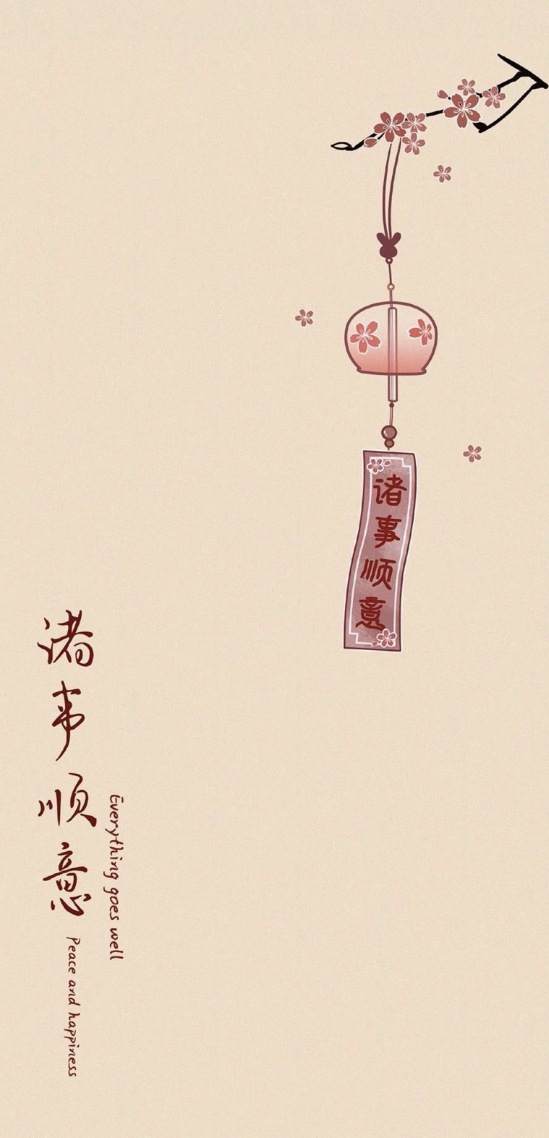 诸事顺意
诸事顺意
Everything goes well
Peace and happiness